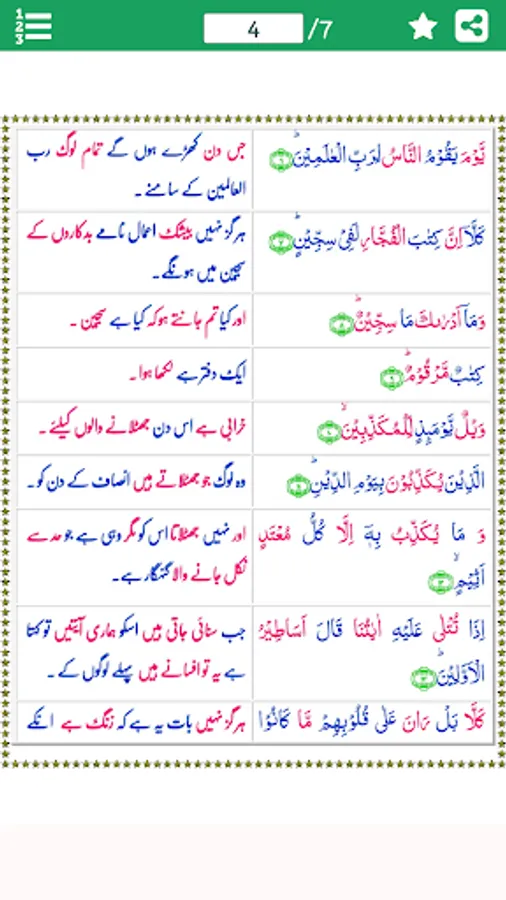 1
2
3
4 /7
يَّوْمَ يَقُوْمُ النَّاسُ لِرَبِّ الْعٰلَمِيْنَؕ ﴿۶﴾
جس دن کھڑے ہوں گے تمام لوگ رب
العالمین کے سامنے ۔
كَلَّاۤ اِنَّ كِتٰبَ الْفُجَّارِ لَفِيْ سِجِّيْنٍؕ ﴿۷﴾
ہرگز نہیں بیشک اعمال نامے بدکاروں کے
سجین میں ہونگے۔
وَمَاۤ اَدْرٰىكَ مَا سِجِّيْنٌؕ ﴿۸﴾
اور کیا تم جانتے ہو کہ کیا ہے سجین ۔
كِتٰبٌ مَّرْقُوْمٌؕ ﴿۹﴾
ایک دفتر ہے لکھا ہوا ۔
وَيْلٌ يَّوْمَىِٕذٍ لِّلْمُكَذِّبِيْنَۙ ﴿۱۰﴾
خرابی ہے اس دن جھٹلانے والوں کیلئے ۔
الَّذِيْنَ يُكَذِّبُوْنَ بِيَوْمِ الدِّيْنِؕ ﴿۱۱﴾
وہ لوگ جو جھٹلاتے ہیں انصاف کے دن کو ۔
وَ مَا يُكَذِّبُ بِهٖۤ اِلَّا كُلُّ مُعْتَدٍ
اَثِيْمٍۙ ﴿۱۲﴾
اور نہیں جھٹلاتا اس کو مگر وہی ہے جو حد سے
نکل جانے والا گنہگار ہے۔
اِذَا تُتْلٰى عَلَيْهِ اٰيٰتُنَا قَالَ اَسَاطِيْرُ
الْاَوَّلِيْنَؕ ﴿۱۳﴾
جب سنائی جاتی ہیں اسکو ہماری آیتیں تو کہتا
ہے یہ تو افسانے ہیں پہلے لوگوں کے ۔
كَلَّا بَلْ رَانَ عَلٰى قُلُوْبِهِمْ مَّا كَانُوْا
ہرگز نہیں بات یہ ہے کہ زنگ ہے انکے